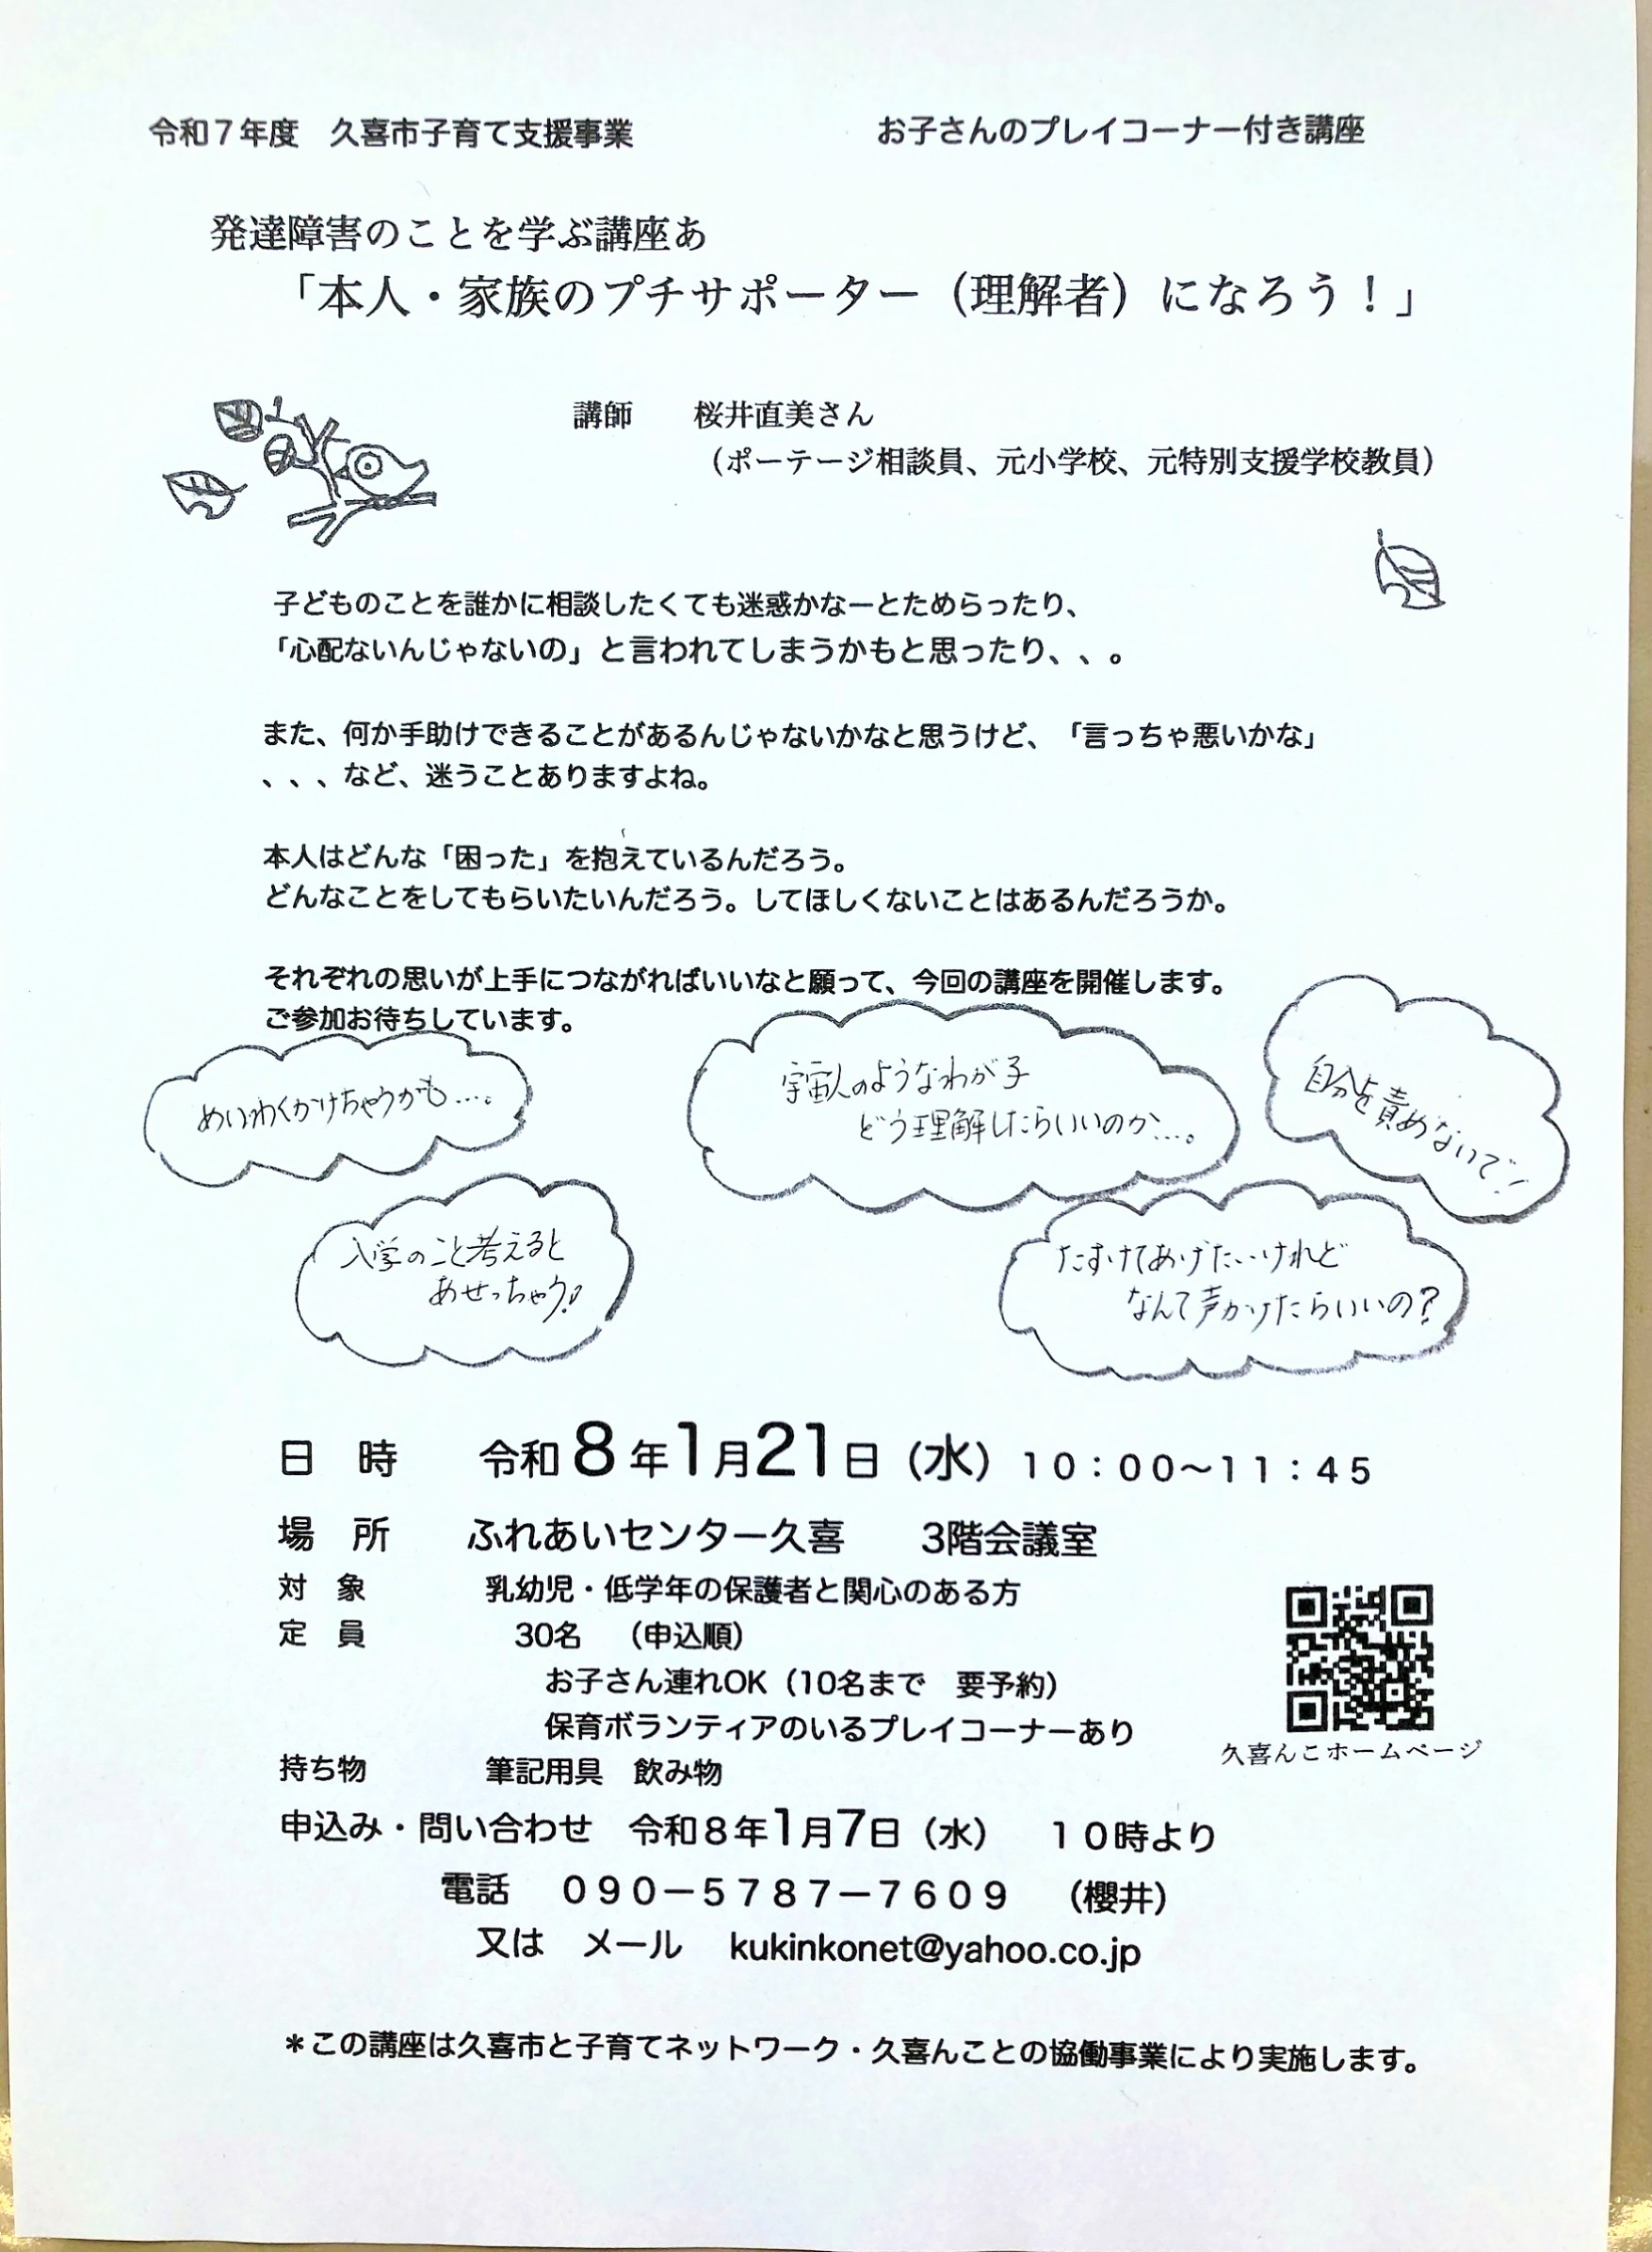 令和７年度　久喜市子育て支援事業　お子さんのプレイコーナー付き講座
発達障害のことを学ぶ講座あ
「本人・家族のプチサポーター（理解者）になろう！」
講師　桜井直美さん
（ポーテージ相談員、元小学校、元特別支援学校教員）
子どものことを誰かに相談したくても迷惑かなーとためらったり、
「心配ないんじゃないの」と言われてしまうかもと思ったり、、。
また、何か手助けできることがあるんじゃないかなと思うけど、「言っちゃ悪いかな」
、、、など、迷うことありますよね。
本人はどんな「困った」を抱えているんだろう。
どんなことをしてもらいたいんだろう。してほしくないことはあるんだろうか。
それぞれの思いが上手につながればいいなと願って、今回の講座を開催します。
ご参加お待ちしています。
めいわくかけちゃうかも…。
宇宙人のようなわが子
どう理解したらいいのか…。
自分を責めないで！
入学のこと考えると
あせっちゃう！
たすけてあげたいけれど
なんて声かけたらいいの？
日　時　令和８年１月21日（水）１０：００～１１：４５
場　所　ふれあいセンター久喜　3階会議室
対　象　乳幼児・低学年の保護者と関心のある方
定　員　30名　（申込順）
お子さん連れOK（10名まで　要予約）
保育ボランティアのいるプレイコーナーあり
久喜んこホームページ
持ち物　筆記用具　飲み物
申込み・問い合わせ　令和８年１月７日（水）　１０時より
電話　０９０－５７８７－７６０９　（櫻井）
又は　メール　kukinkonet@yahoo.co.jp
＊この講座は久喜市と子育てネットワーク・久喜んことの協働事業により実施します。